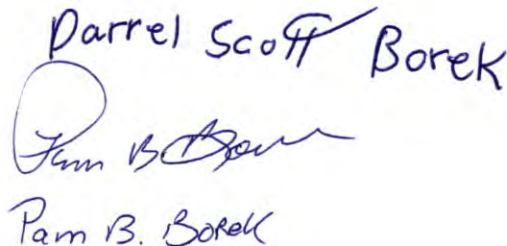 Darrel Scott Borek
Pam B Borek
Pam B. Borek